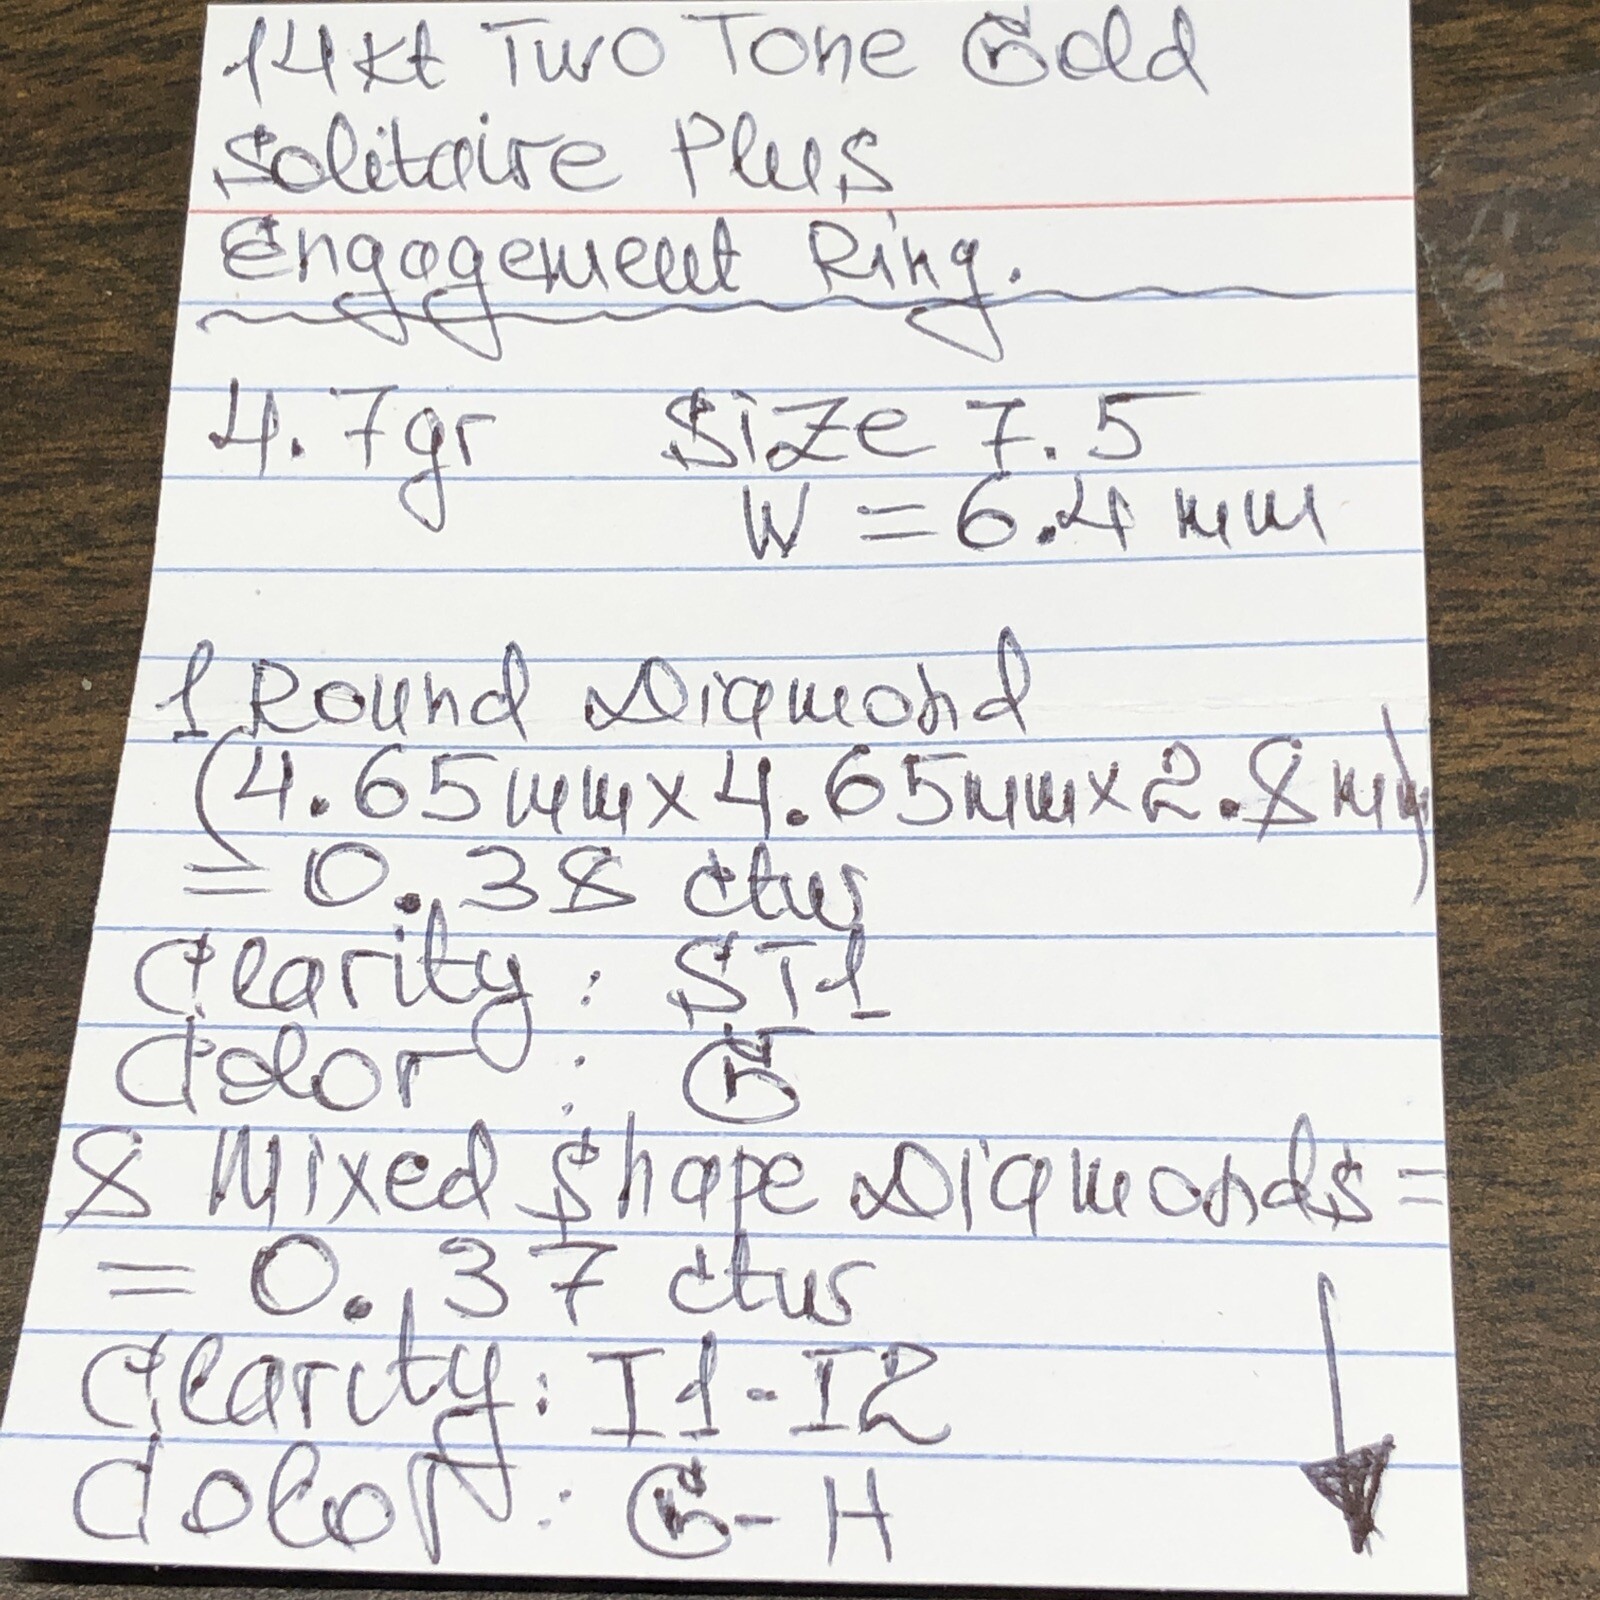 14kt Two Tone Gold
Solitaire Plus
Engagement Ring.
4.7gr Size 7.5
W = 6.4 mm
1 Round Diamond
(4.65mm x 4.65mm x 2.8mm)
= 0.38 ctw
Clarity: SI1
Color : G
8 Mixed Shape Diamonds =
= 0.37 ctw
Clarity: I1-I2
Color : G-H